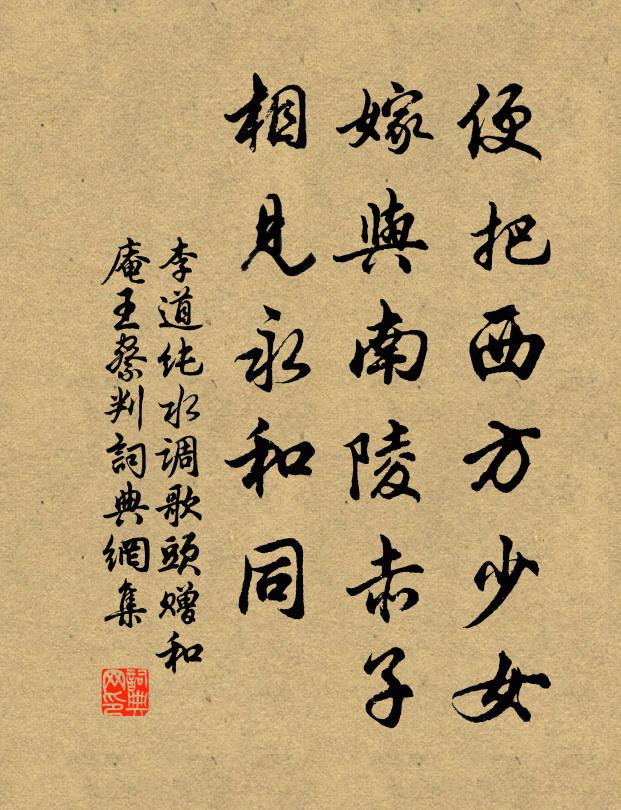 便把西方少女
嫁與南陵赤子
相見永和同
李道纯水调歌頭赠和
庵王察判詞典網集
詞典网印